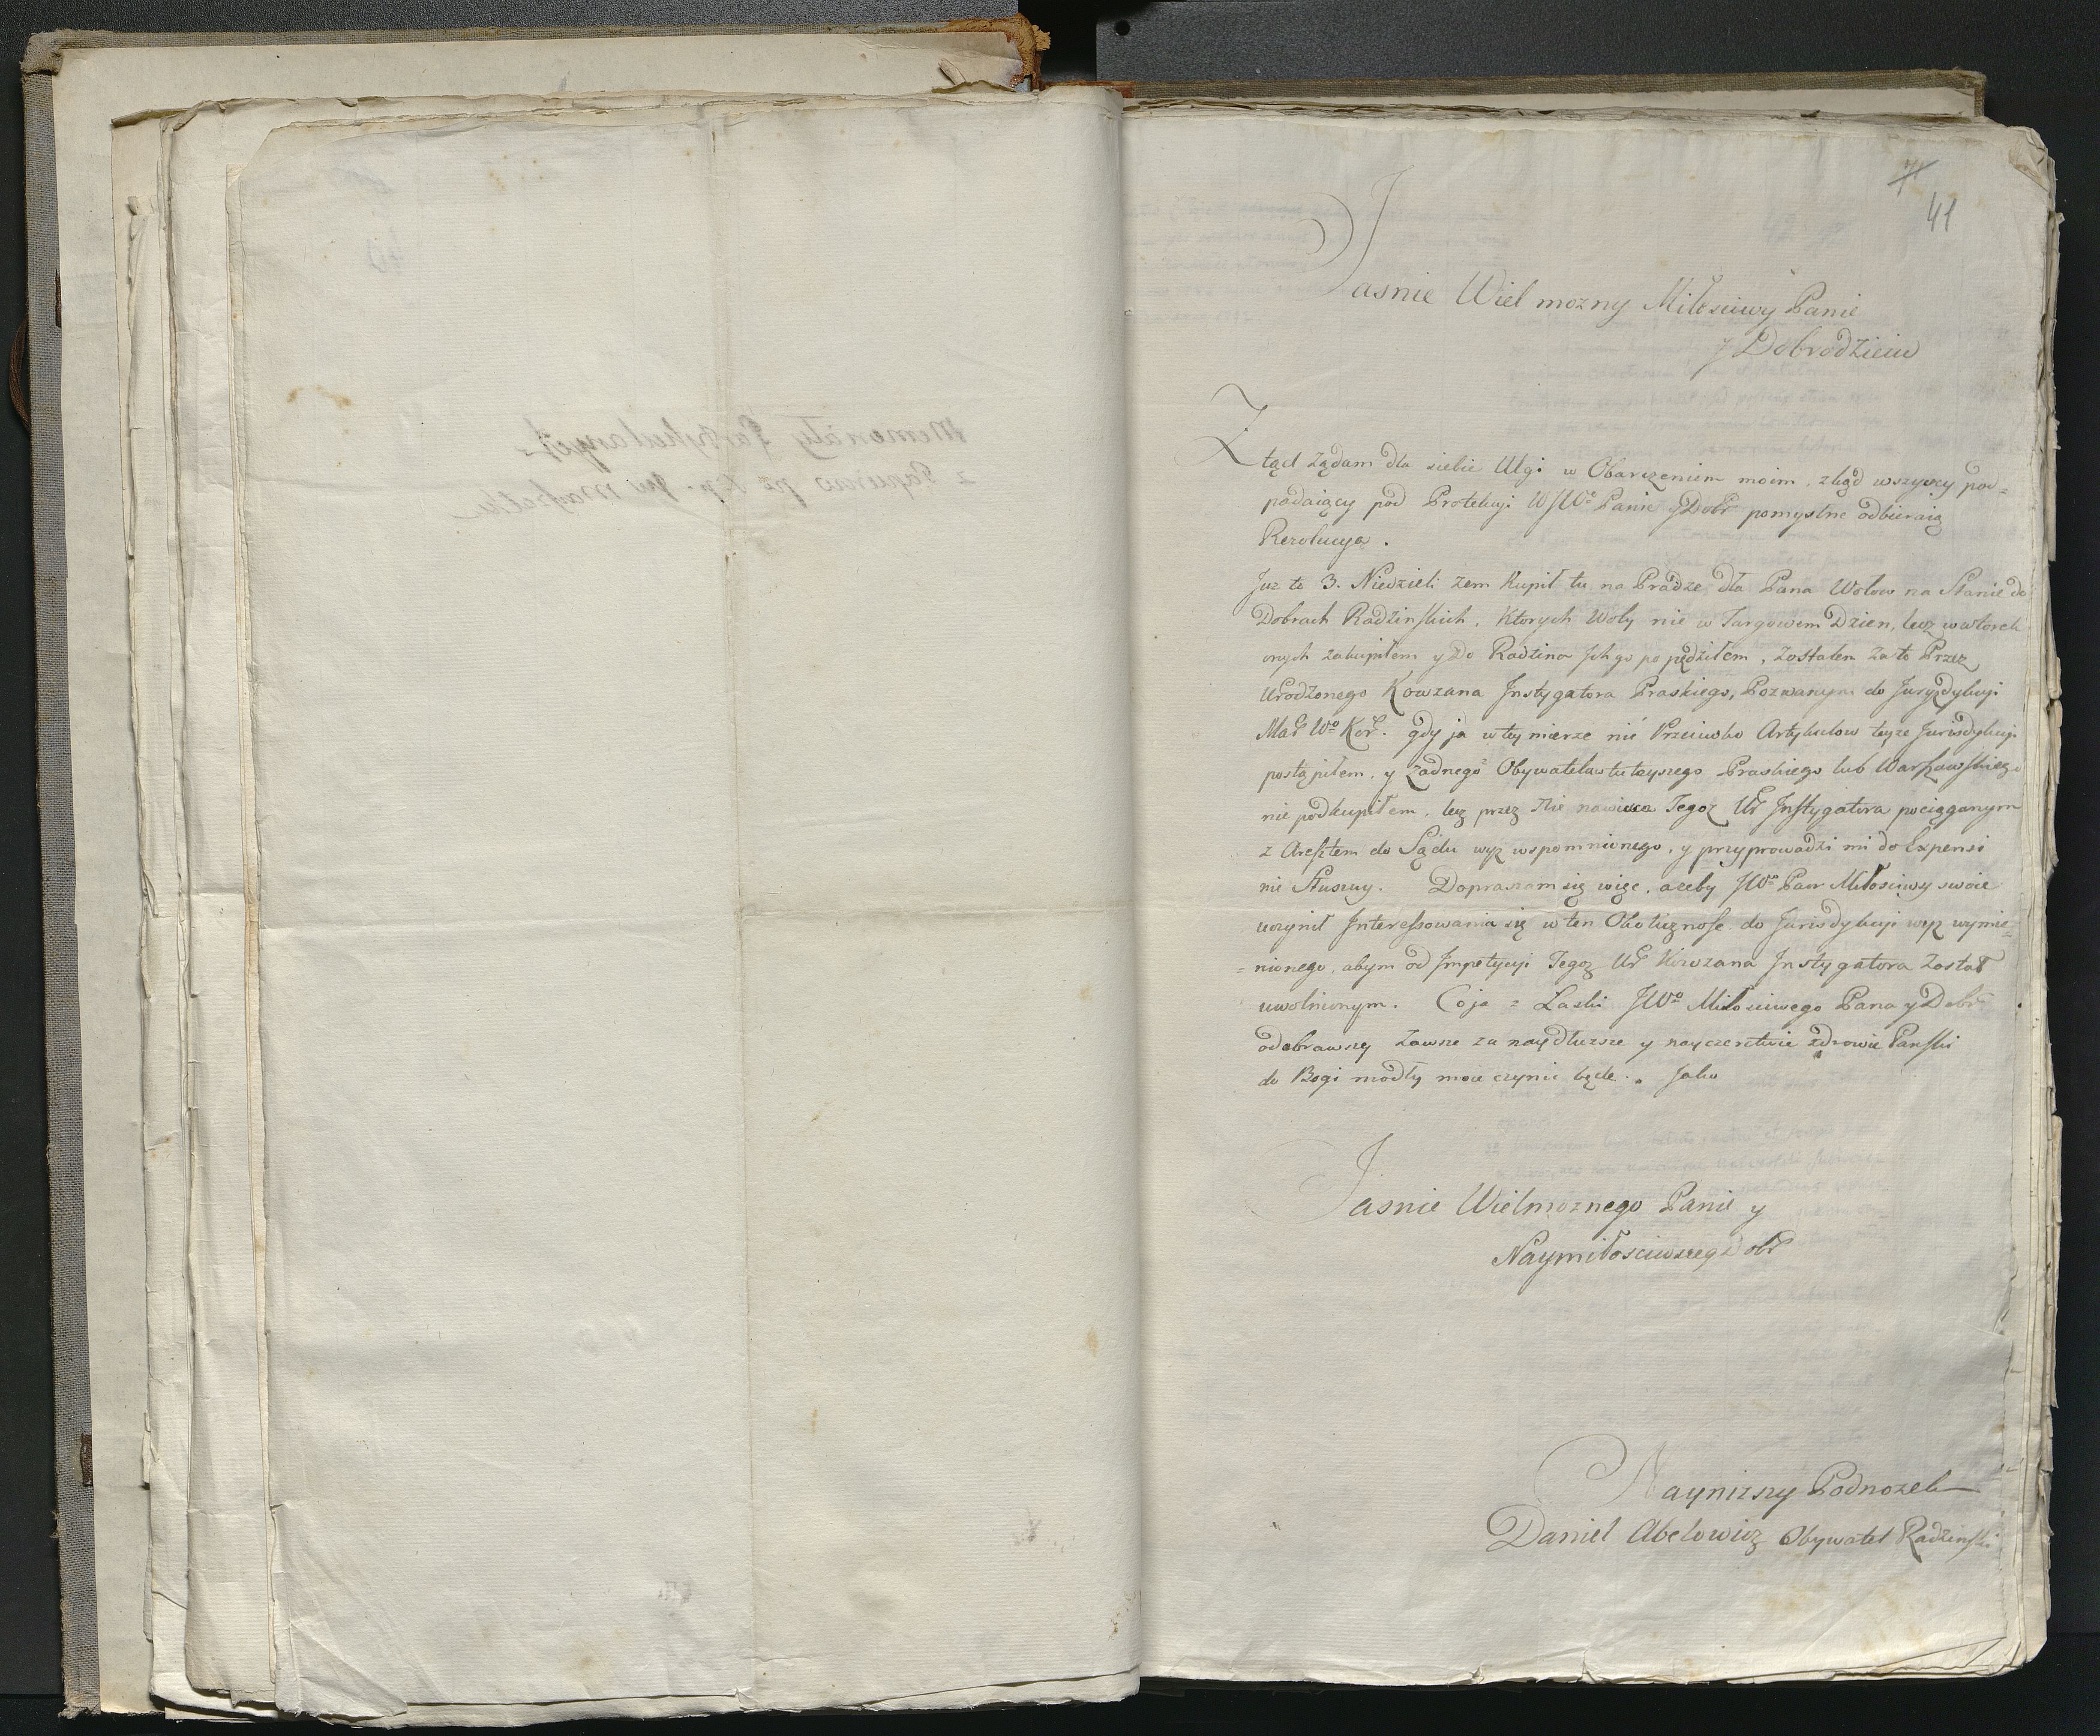 41
Jasnie Wiel mozny Miłosciwy Panie
y Dobrodzieiu
Ztąd Ządam dla siebie Ulgi w Obarczeniem moim, zkąd wszyscy pod=
padaiący pod Protekcyi WJWo Panie y Dobr pomyslne odbieraią
Rezolucya.
Juz to 3. Niedzieli zem Kupił tu na Pradze dla Pana Wolow na Stanie do
Dobrach Radzinskich, Ktorych Woly nie w Targowem Dzien, lecz w wtorek
onych zakupiłem y Do Radzina Jch go po pędziłem, zostałem Za to Przez
Urodzonego Kowzana Instygatora Praskiego, Pozwanym do Juryzdykcyi
Mar Wo Kor. gdy ja w tey mierze nié Przeciwko Artykulow teyze Jurisdykcyi
postąpiłem, y Zadnego Obywatelu tuteyszego Praskiego lub Warszawskiego
nie podkupiłem, lecz przez Nie nawisca Tegoz Ur Instygatora pociąganym
z Aresztem do Sądu wyz wspomnionego, y przyprowadzi mi do Expensi
nie Słuszny. Dopraszam się więc, azeby JWo Pan Miłosciwy swoie
uczynił Interessowania się w ten Okolicznosc do Jurisdykcyi wyz wymie=
=nionego, abym od Impetycyi Tegoz Ur Kowzana Instygatora Został
uwolnionym. Co ja z Laski JWo Miłosciwego Pana y Dobr
odebrawszy Zawsze za naydłuzsze y nayczerstwie zdrowie Panski
do Bogi modły moie czynic będe. Jako
Jasnie Wielmoznego Panie y
Naymiłosciwszeg Dobr
Naynizszy Podnozek
Daniel Abelowicz Obywatel Radzinski